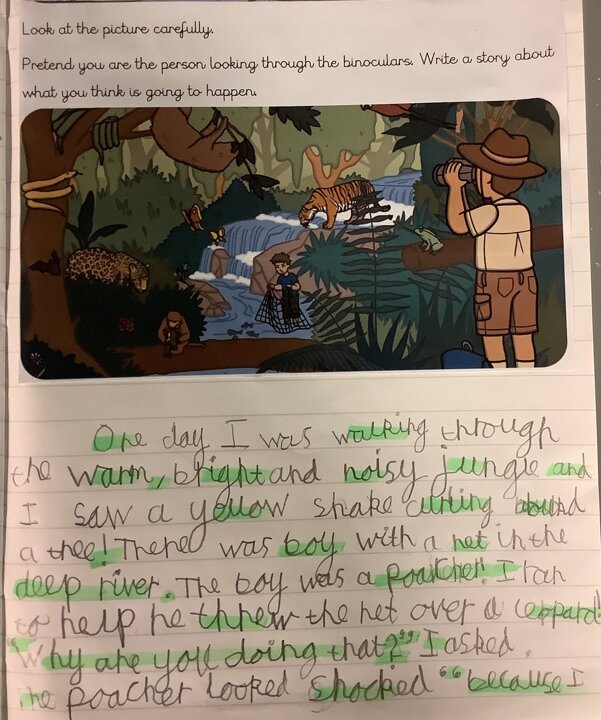 Look at the picture carefully.
Pretend you are the person looking through the binoculars. Write a story about
what you think is going to happen.
One day I was walking through
the warm, bright and noisy jungle and
I saw a yellow snake curling around
a tree! There was boy with a net in the
deep river. The boy was a poatcher! I ran
to help he threw the net over a leppard!
"Why are you doing that?" I asked.
The poacher looked shocked "because I